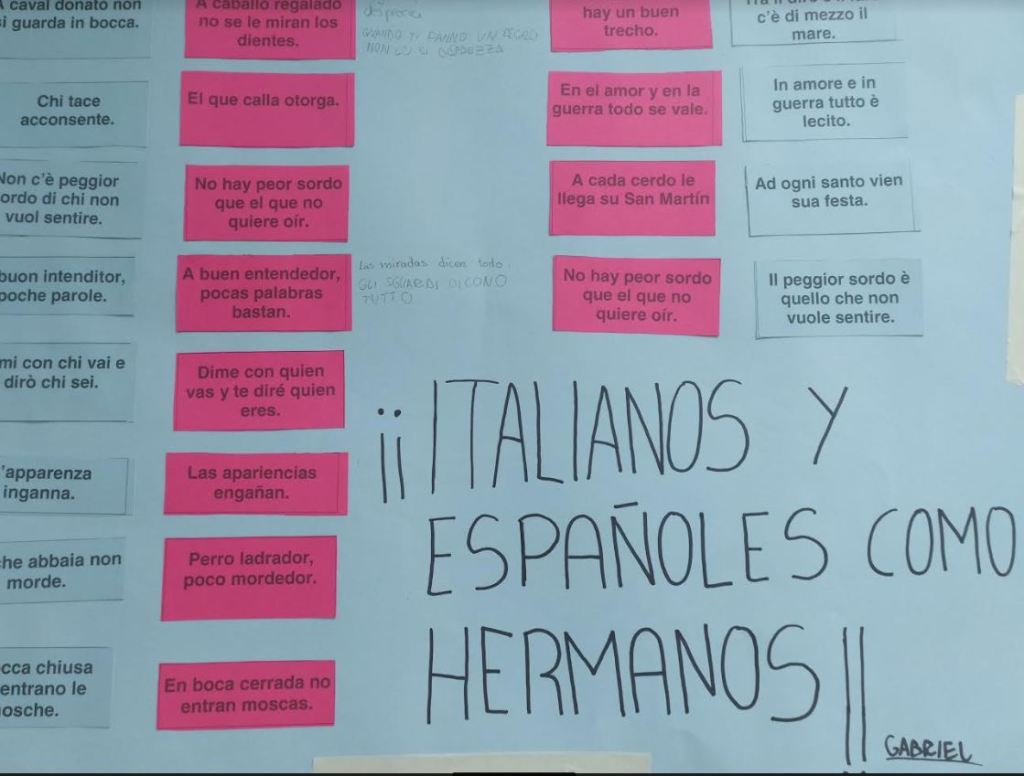 caval donato non
si guarda in bocca.
A caballo regalado
no se le miran los
dientes.
desprecia
NON
hay un buen
trecho.
c'è di mezzo il
mare.
Chi tace
acconsente.
El que calla otorga.
En el amor y en la
guerra todo se vale.
In amore e in
guerra tutto è
lecito.
Non c'è peggior
ordo di chi non
vuol sentire.
No hay peor sordo
que el que no
quiere oír.
A cada cerdo le
llega su San Martín
Ad ogni santo vien
sua festa.
buon intenditor,
poche parole.
A buen entendedor,
pocas palabras
bastan.
Las miradas dicen todo.
GLI SGUARDI DICONO
TUTTO
No hay peor sordo
que el que no
quiere oír.
Il peggior sordo è
quello che non
vuole sentire.
mi con chi vai e
dirò chi sei.
Dime con quien
vas y te diré quien
eres.
'apparenza
inganna.
Las apariencias
engañan.
che abbaia non
morde.
Perro ladrador,
poco mordedor.
occa chiusa
entrano le
mosche.
En boca cerrada no
entran moscas.
¡¡ITALIANOS Y
ESPAÑOLES COMO
HERMANOS!!
GABRIEL